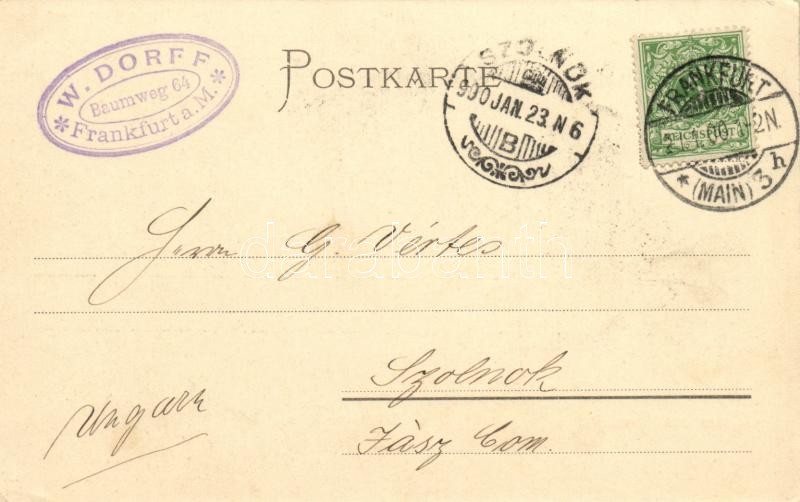 W. DORFF
Baumweg 64
* Frankfurt a. M. *
POSTKARTE
SZOLNOK
900 JAN. 23. N 6
B
FRANKFURT
REICHSPOST
2N.
* (MAIN) 3 h
Herrn G. Vértes
darabanth
Szolnok
Ungarn
Jász Com.